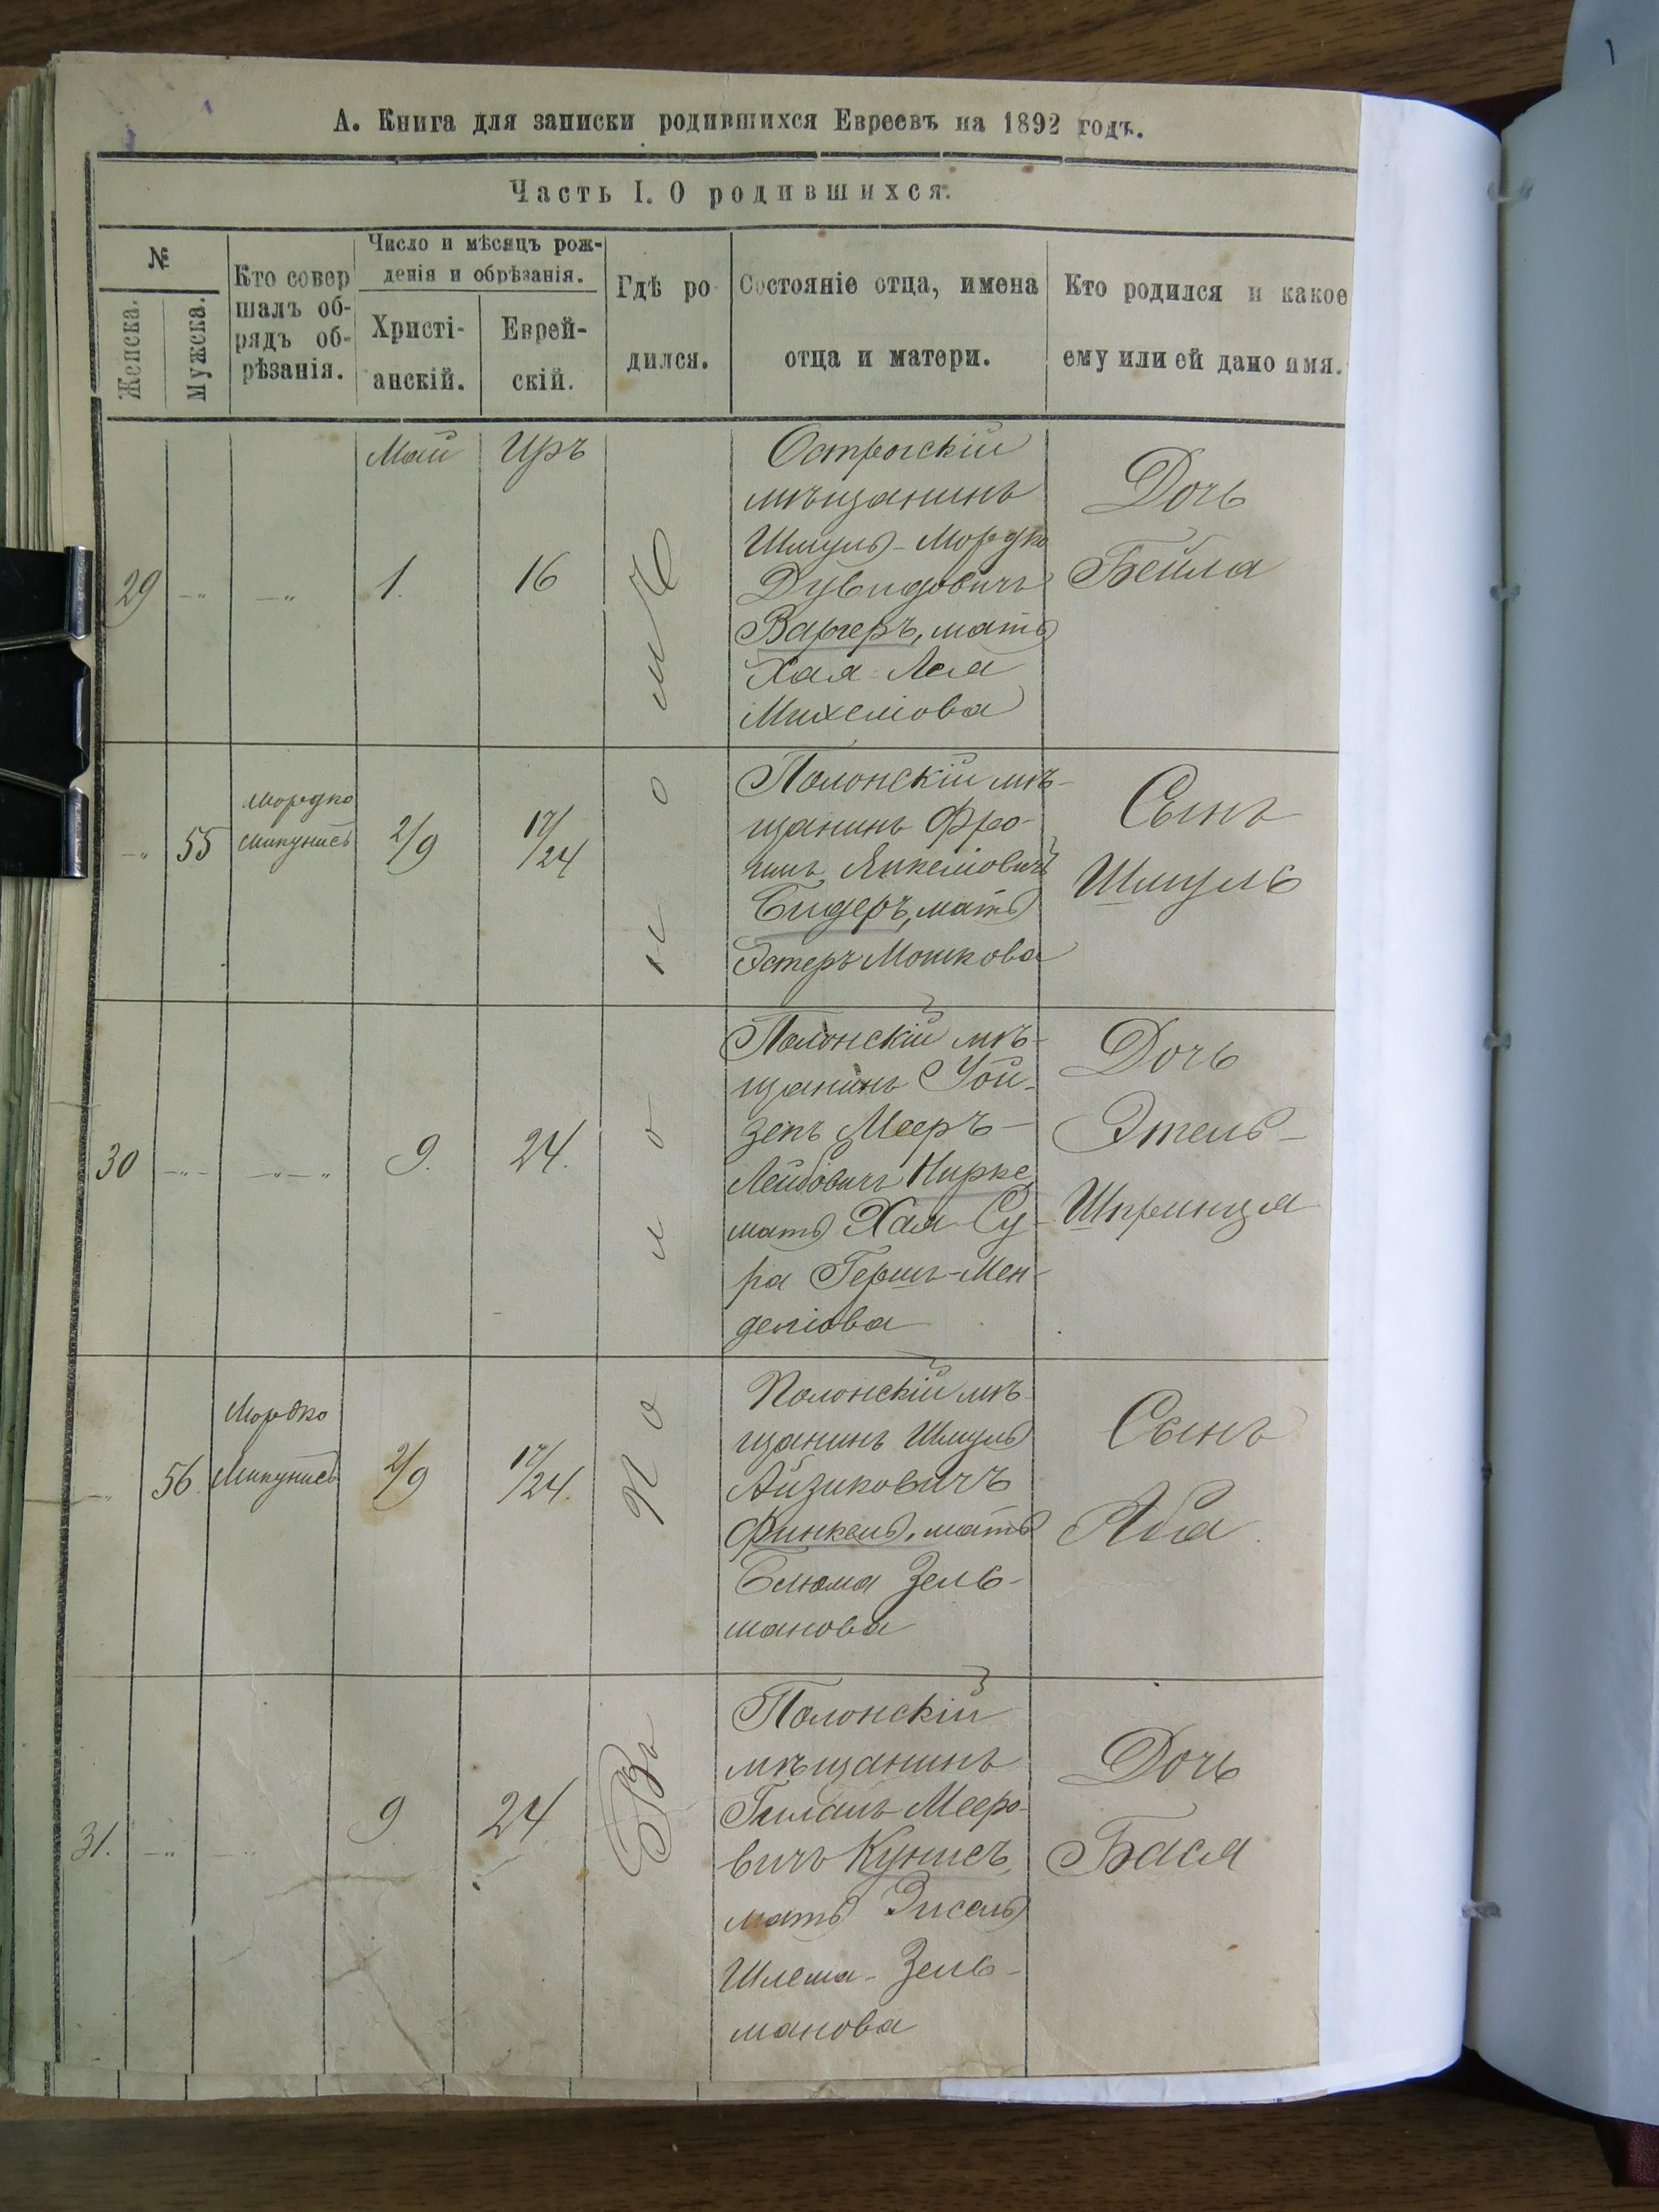 А. Книга для записки родившихся Евреевъ на 1892 годъ.
Часть I. О родившихся.
№
Женска.
Мужска.
Кто совер
шалъ об-
рядъ об-
рѣзанія.
Число и мѣсяцъ рож-
денія и обрѣзанія.
Христі-
анскій.
Еврей-
скій.
Гдѣ ро
дился.
Состояніе отца, имена
отца и матери.
Кто родился и какое
ему или ей дано имя.
Въ Полонномъ
29
Май
1.
Иръ
16
Острогскій
мѣщанинъ
Шмуль-Мордко
Дувидовичъ
Вархеръ, мать
Хая-Лея
Михеліова
Дочь
Бейла
55
Мордко
Микунисъ
2/9
17/24
Полонскій мѣ-
щанинъ Фро-
имъ Янкеліовичъ
Бидеръ, мать
Эстеръ Мошкова
Сынъ
Шмуль
30
9.
24.
Полонскій мѣ-
щанинъ
Мееръ-
Лейбовичъ
мать Хая-Су-
ра Гершъ-Мен-
деліова
Дочь
Этель-
Шпринця
56
Мордко
Микунисъ
2/9
17/24.
Полонскій мѣ-
щанинъ Шмуль
Айзиковичъ
Финкель, мать
Блюма Зель-
манова
Сынъ
Аба
31.
9
24
Полонскій
мѣщанинъ
Мееро-
вичъ Кунисъ,
мать
Шлема-Зель-
манова
Дочь
Бася